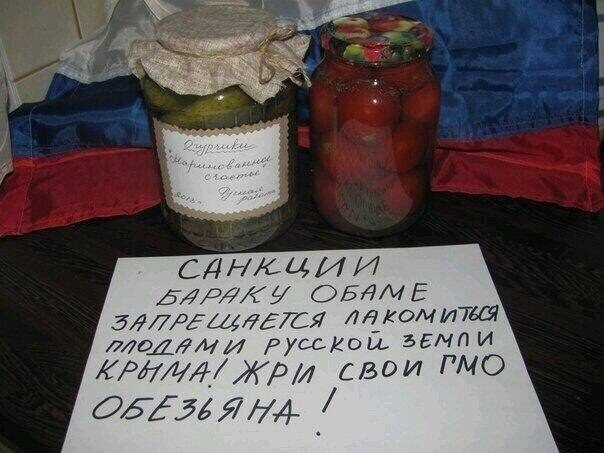 Огурчики
"Маринованное
счастье"
2013 г.
Ручная
работа
САНКЦИИ
БАРАКУ ОБАМЕ
ЗАПРЕЩАЕТСЯ ЛАКОМИТЬСЯ
ПЛОДАМИ РУССКОЙ ЗЕМЛИ
КРЫМА! ЖРИ СВОИ ГМО
ОБЕЗЬЯНА!